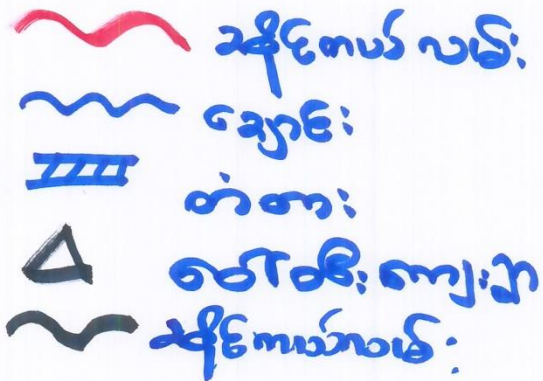 ဆိုင်ကယ် လမ်း
ချောင်း
တံတား
ကျေးရွာ
ဆိုင်ကယ်လမ်း